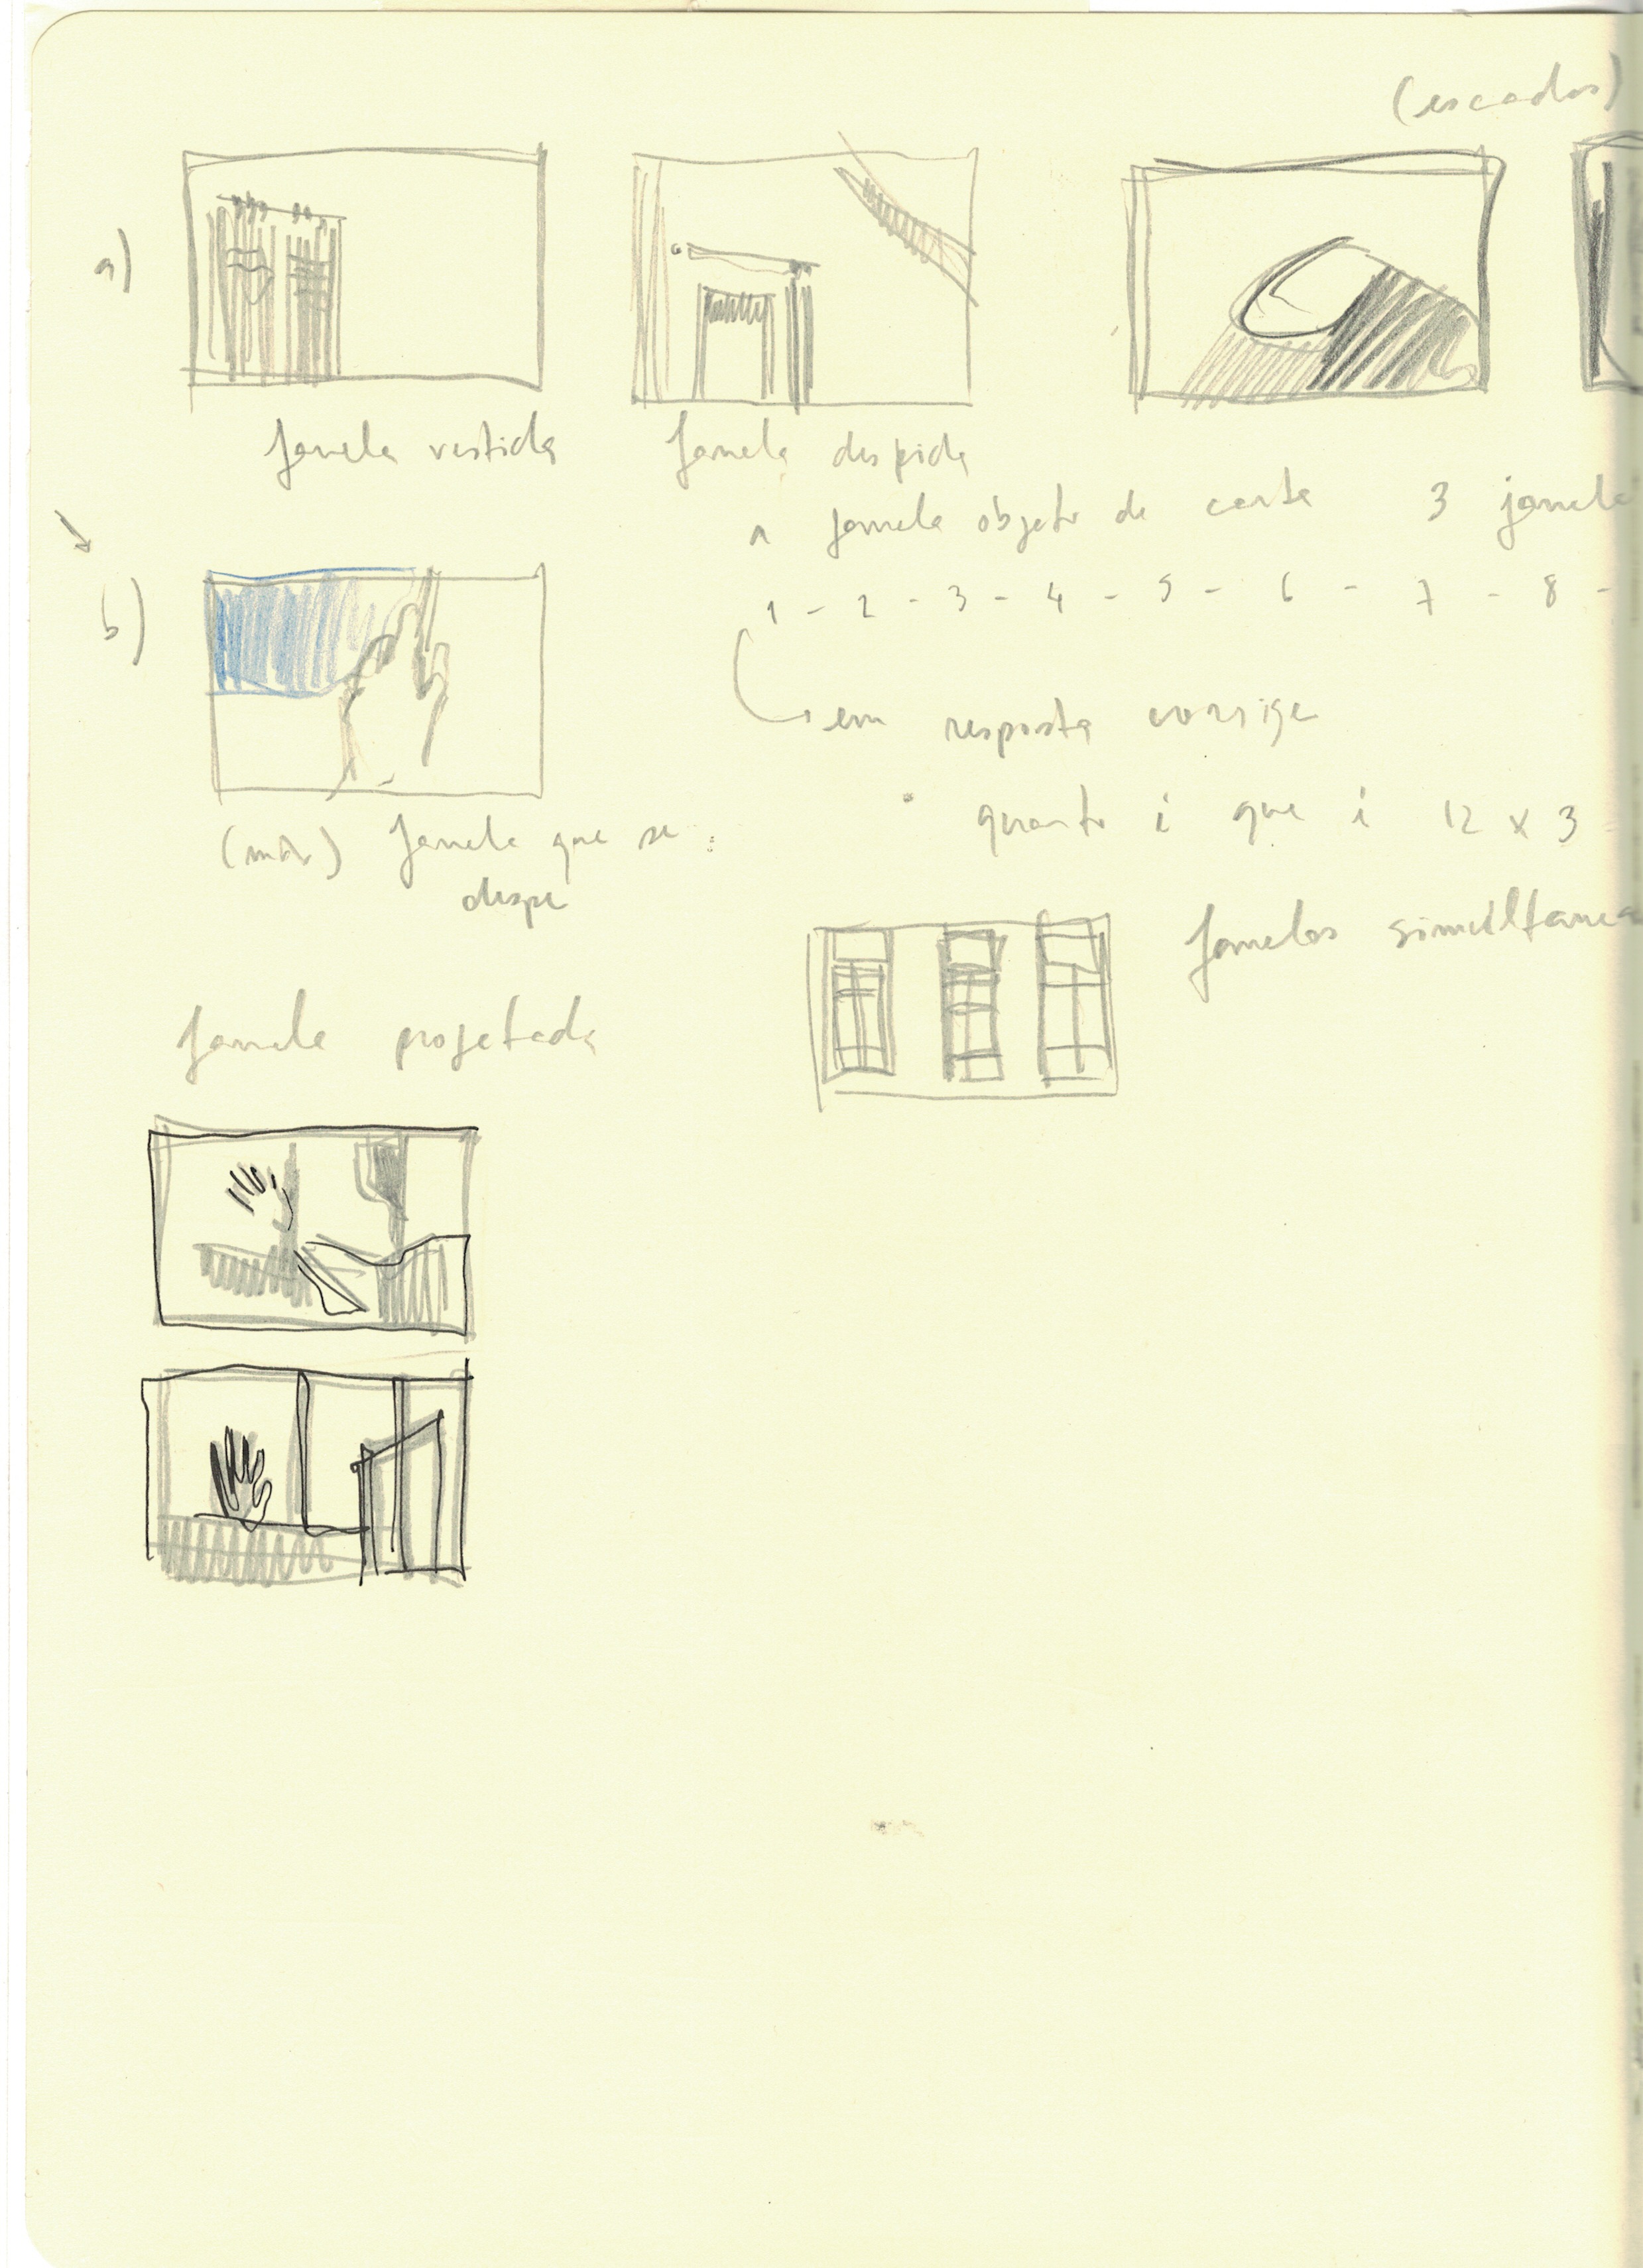 (escadas)
a)
janela vestida
janela despida
a janela objeto de carta 3 janela
1 - 2 - 3 - 4 - 5 - 6 - 7 - 8 -
b)
em resposta corrige
quanto é que é 12 x 3
(mão) janela que se
despe
janelas simultanea
janela projetada